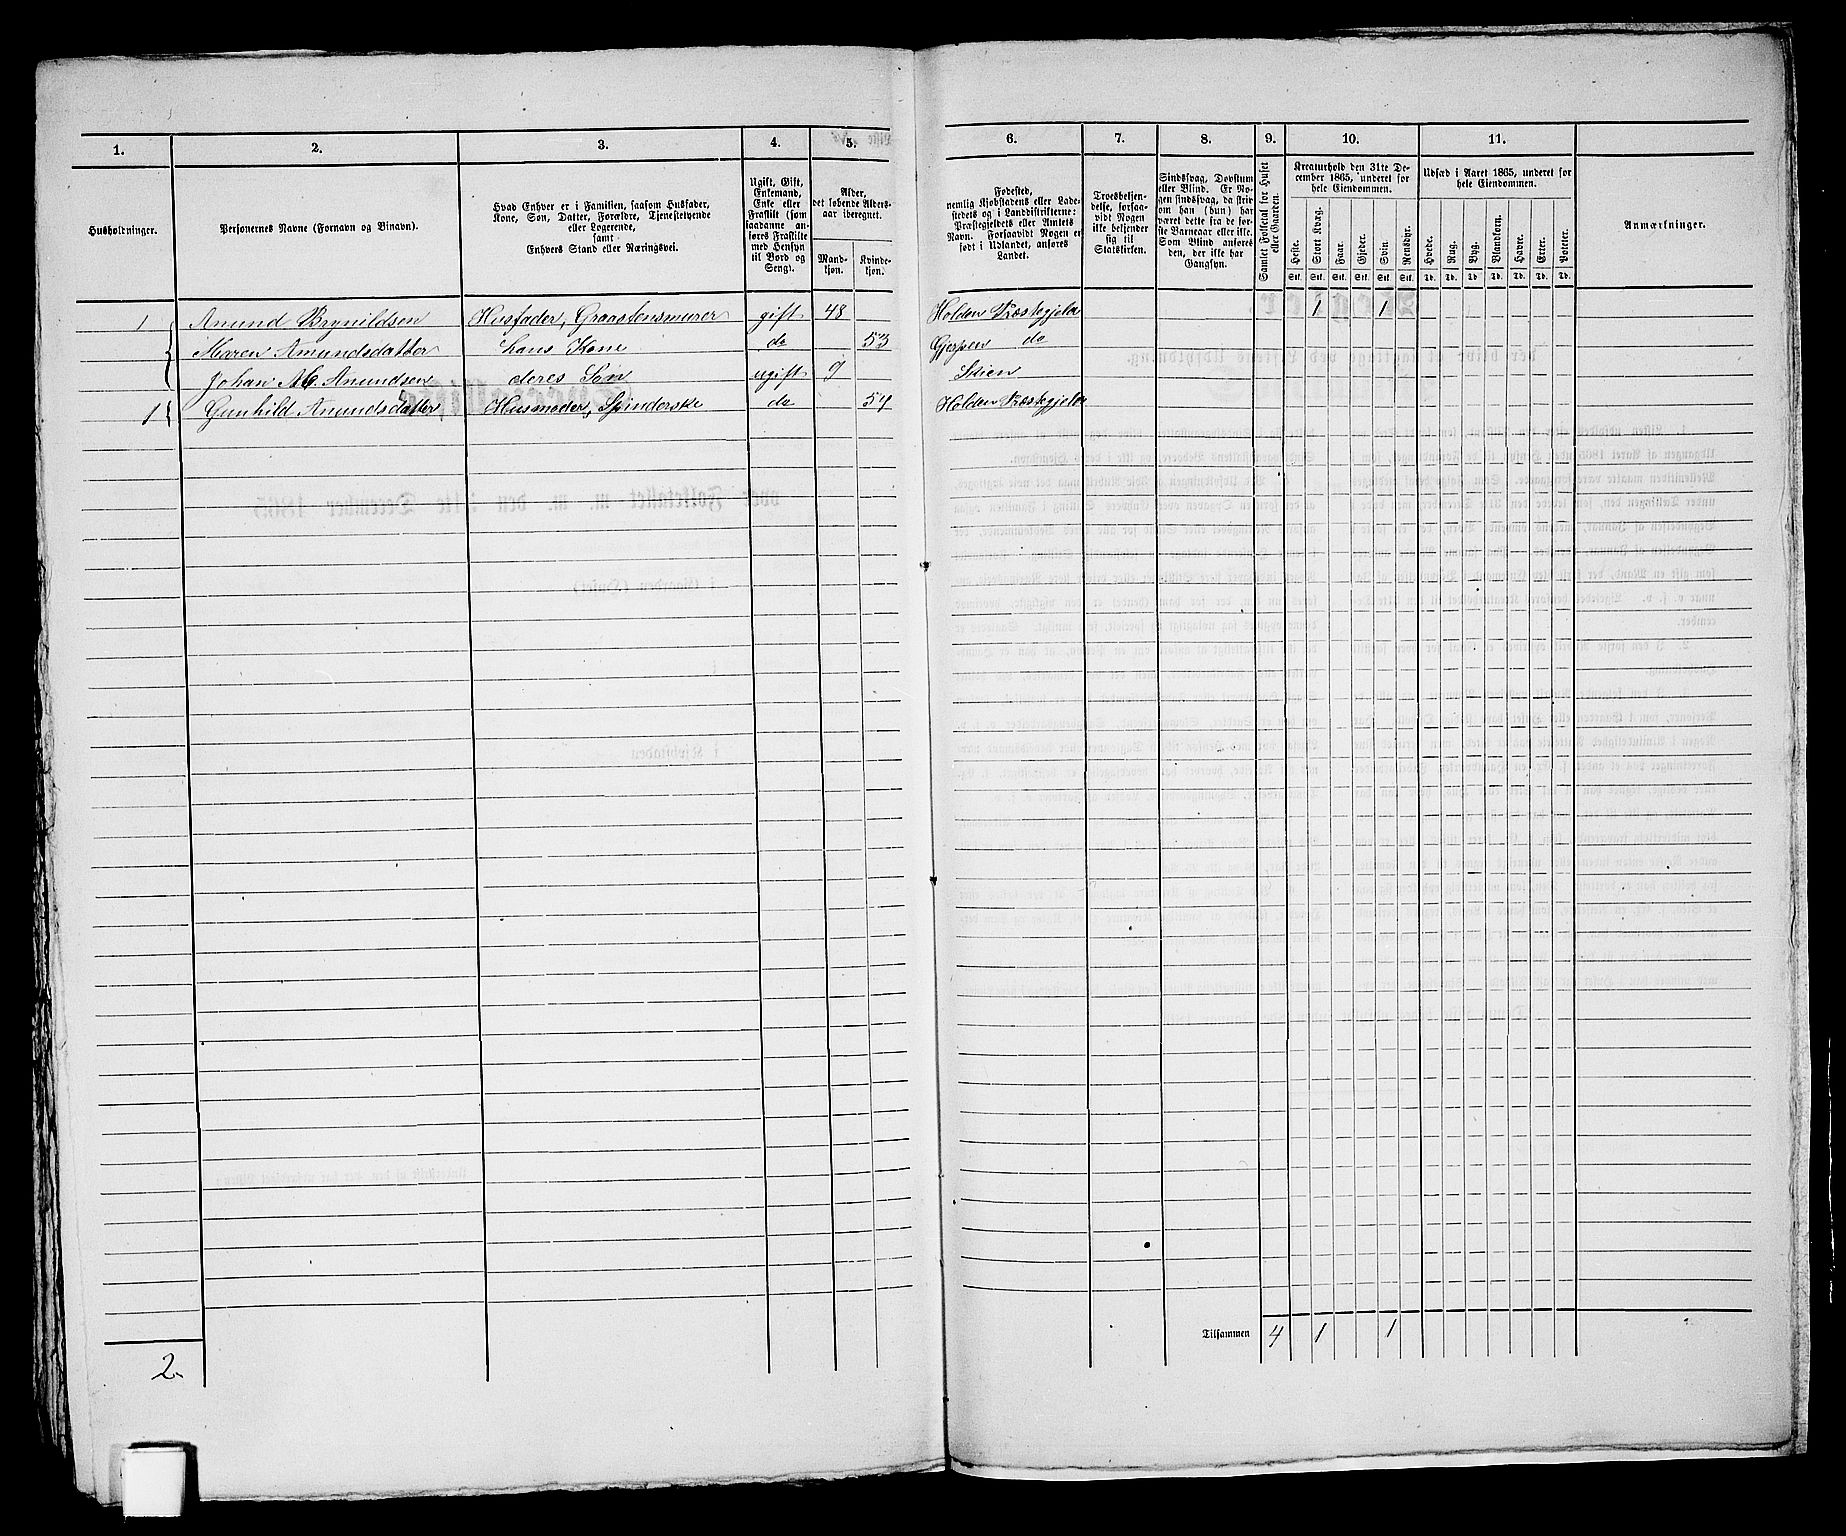 1. 2. 3. 4. 5. 6. 7. 8. 9. 10. 11.
Husholdninger.
Personernes Navne (Fornavn og Binavn).
Hvad Enhver er i Familien, saasom Husfader,
Kone, Søn, Datter, Forældre, Tjenestetyende
eller Logerende,
samt
Enhvers Stand eller Næringsvei.
Ugift, Gift,
Enkemand,
Enke eller
Fraskilt (som
saadanne an-
føres Fraskilte
med Hensyn
til Bord og
Seng).
Alder,
det løbende Alders-
aar iberegnet.
Mand-
kjøn.
Kvinde-
kjøn.
Fødested,
nemlig Kjøbstadens eller Lade-
stedets og i Landdistrikterne:
Præstegjeldets eller Amtets
Navn. Forsaavidt Nogen er
født i Udlandet, anføres
Landet.
Troesbekjen-
delse, forsaa-
vidt Nogen
ikke bekjender
sig til
Statskirken.
Sindssvag, Døvstum
eller Blind. Er No-
gen sindssvag, da skriv
om han (hun) har
været dette fra de før-
ste Barneaar eller ikke.
Som Blind anføres
den, der ikke har
Gangsyn.
Samlet Folketal for Huset
eller Gaarden.
Kreaturhold den 31te De-
cember 1865, underet for
hele Eiendommen.
Heste. Stort Kvæg. Faar. Gjeder. Svin. Rensdyr.
Stk. Stk. Stk. Stk. Stk. Stk.
Udsæd i Aaret 1865, underet for
hele Eiendommen.
Hvede. Rug. Byg. Blandkorn. Havre. Erter. Poteter.
Td. Td. Td. Td. Td. Td. Td.
Anmærkninger.
1 Anund Brynildsen Husfader, Graastensmurer gift 48 Holden Præstegjeld 1 1
Maren Amundsdatter hans Kone do 53 Gjerpen do
Johan M. Anundsen deres Søn ugift 9 Skien
1 Gunhild Anundsdatter Husmoder, Spinderske do 54 Holden Præstegjeld
Tilsammen 4 1 1
2.